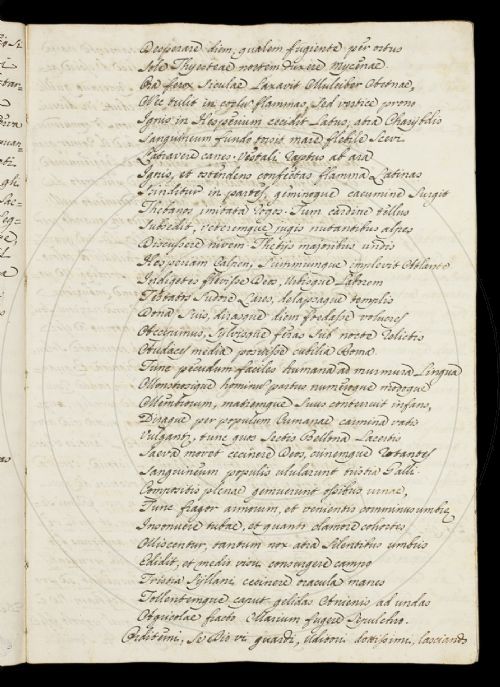 Desperare diem, qualem fugiente per ortus
Sole Thyesteae noctem duxere Mycenae.
Ora ferox Siculae laxavit Mulciber Aetnae,
Nec tulit in coelum flammas, sed vertice prono
Ignis in Hesperium cecidit latus, atra Charybdis
Sanguineum fundo torsit mare flebile Saevi
Latravere canes. Vestali raptus ab ara
Ignis, et ostendens confectas flamma Latinas
Scinditur in partes, geminoque cacumine surgit
Thebanos imitata rogos. Tum cardine tellus
Subsedit, veteremque jugis nutantibus alpes
Discussere nivem. Thetijs majoribus undis
Hesperiam Calpen, Summumque implevit Atlante
Indigetes flevisse Deos, Urbisque laborem
Testatos sudore Lares, delapsaque templis
Dona suis, dirasque diem foedasse volucres
Accepimus, sylvisque feras sub nocte relictis
Audaces media posuisse cubilia Roma.
Tunc pecudum faciles humana ad murmura linguae
Monstrosique hominum partus numeroque modoque
Membrorum, matremque suus conterruit infans,
Diraque per populum Cumanae carmina vatis
Vulgantur, tunc quos sectis Bellona lacertis
Saeva movet cecinere Deos, crinemque rotantes
Sanguineum populis ulularunt tristia Galli.
Compositis plenae gemuerunt ossibus urnae,
Tunc fragor armorum, et venientes comminus umbre,
Insonuere tubae, et quanto clamore cohortes
Miscentur, tantum nox atra silentibus umbris
Edidit, et medio visi consurgere campo
Tristia Syllani cecinere oracula manes
Tollentemque caput gelidas Anienis ad undas
Agricolae fracto Marium fugere Sepulchro.
Arditemi, se Dio vi guardi, Uditori dottissimi, lasciando